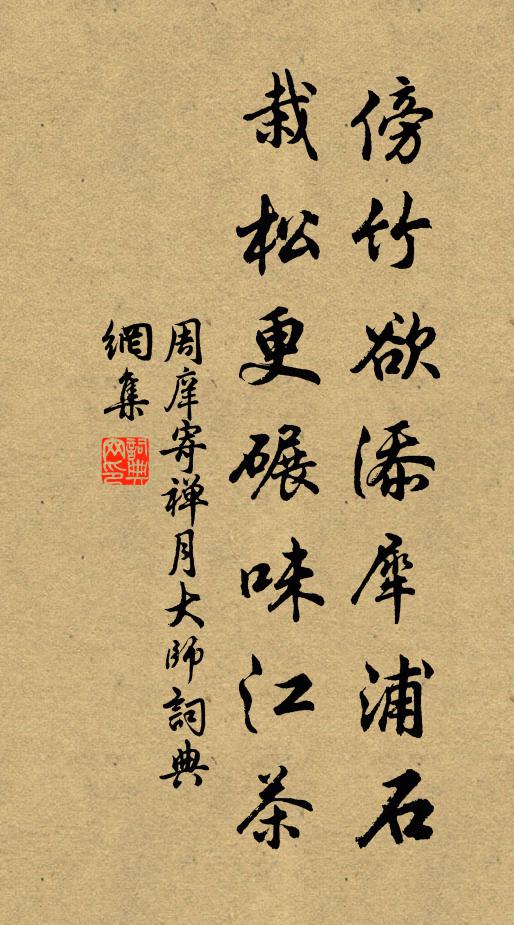 傍竹欲添犀浦石
栽松更碾味江茶
周庠寄禅月大師詞典
網集
詞典
网印